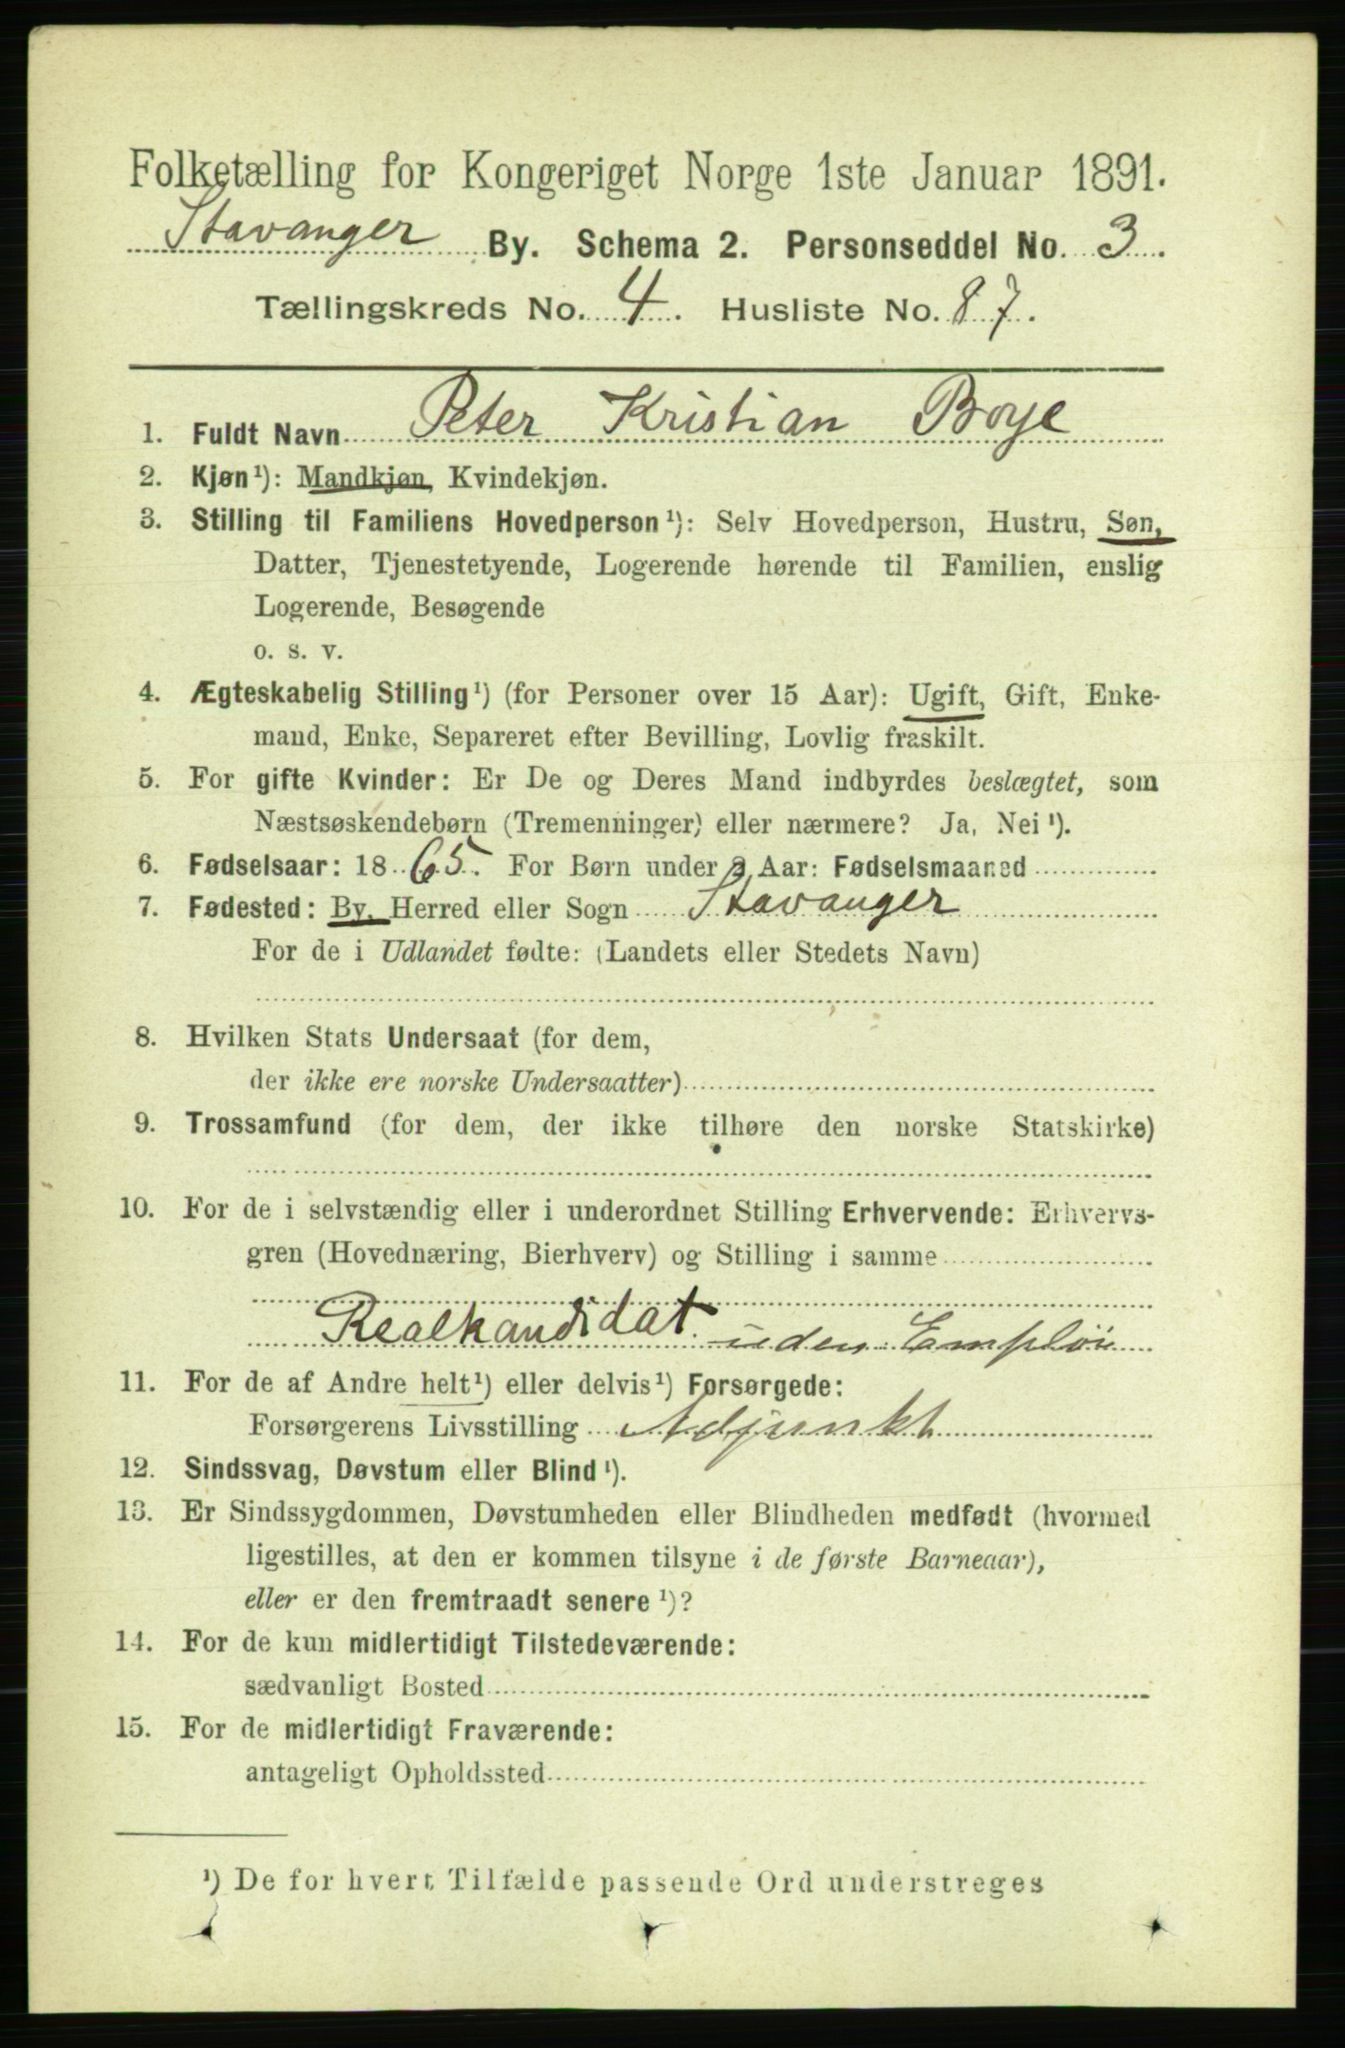 Folketælling for Kongeriget Norge 1ste Januar 1891.
Stavanger By. Schema 2. Personseddel No. 3.
Tællingskreds No. 4. Husliste No. 87.
1. Fuldt Navn Peter Kristian Boye
2. Kjøn¹): Mandkjøn, Kvindekjøn.
3. Stilling til Familiens Hovedperson¹): Selv Hovedperson, Hustru, Søn,
Datter, Tjenestetyende, Logerende hørende til Familien, enslig
Logerende, Besøgende
o. s. v.
4. Ægteskabelig Stilling¹) (for Personer over 15 Aar): Ugift, Gift, Enke-
mand, Enke, Separeret efter Bevilling, Lovlig fraskilt.
5. For gifte Kvinder: Er De og Deres Mand indbyrdes beslægtet, som
Næstsøskendebørn (Tremenninger) eller nærmere? Ja, Nei¹).
6. Fødselsaar: 1865. For Børn under 2 Aar: Fødselsmaaned
7. Fødested: By, Herred eller Sogn Stavanger
For de i Udlandet fødte: (Landets eller Stedets Navn)
8. Hvilken Stats Undersaat (for dem,
der ikke ere norske Undersaatter)
9. Trossamfund (for dem, der ikke tilhøre den norske Statskirke)
10. For de i selvstændig eller i underordnet Stilling Erhvervende: Erhvervs-
gren (Hovednæring, Bierhverv) og Stilling i samme
Realkandidat uden Empløi
11. For de af Andre helt¹) eller delvis¹) Forsørgede:
Forsørgerens Livsstilling Adjunkt
12. Sindssvag, Døvstum eller Blind¹).
13. Er Sindssygdommen, Døvstumheden eller Blindheden medfødt (hvormed
ligestilles, at den er kommen tilsyne i de første Barneaar),
eller er den fremtraadt senere¹)?
14. For de kun midlertidigt Tilstedeværende:
sædvanligt Bosted
15. For de midlertidigt Fraværende:
antageligt Opholdssted
¹) De for hvert Tilfælde passende Ord understreges